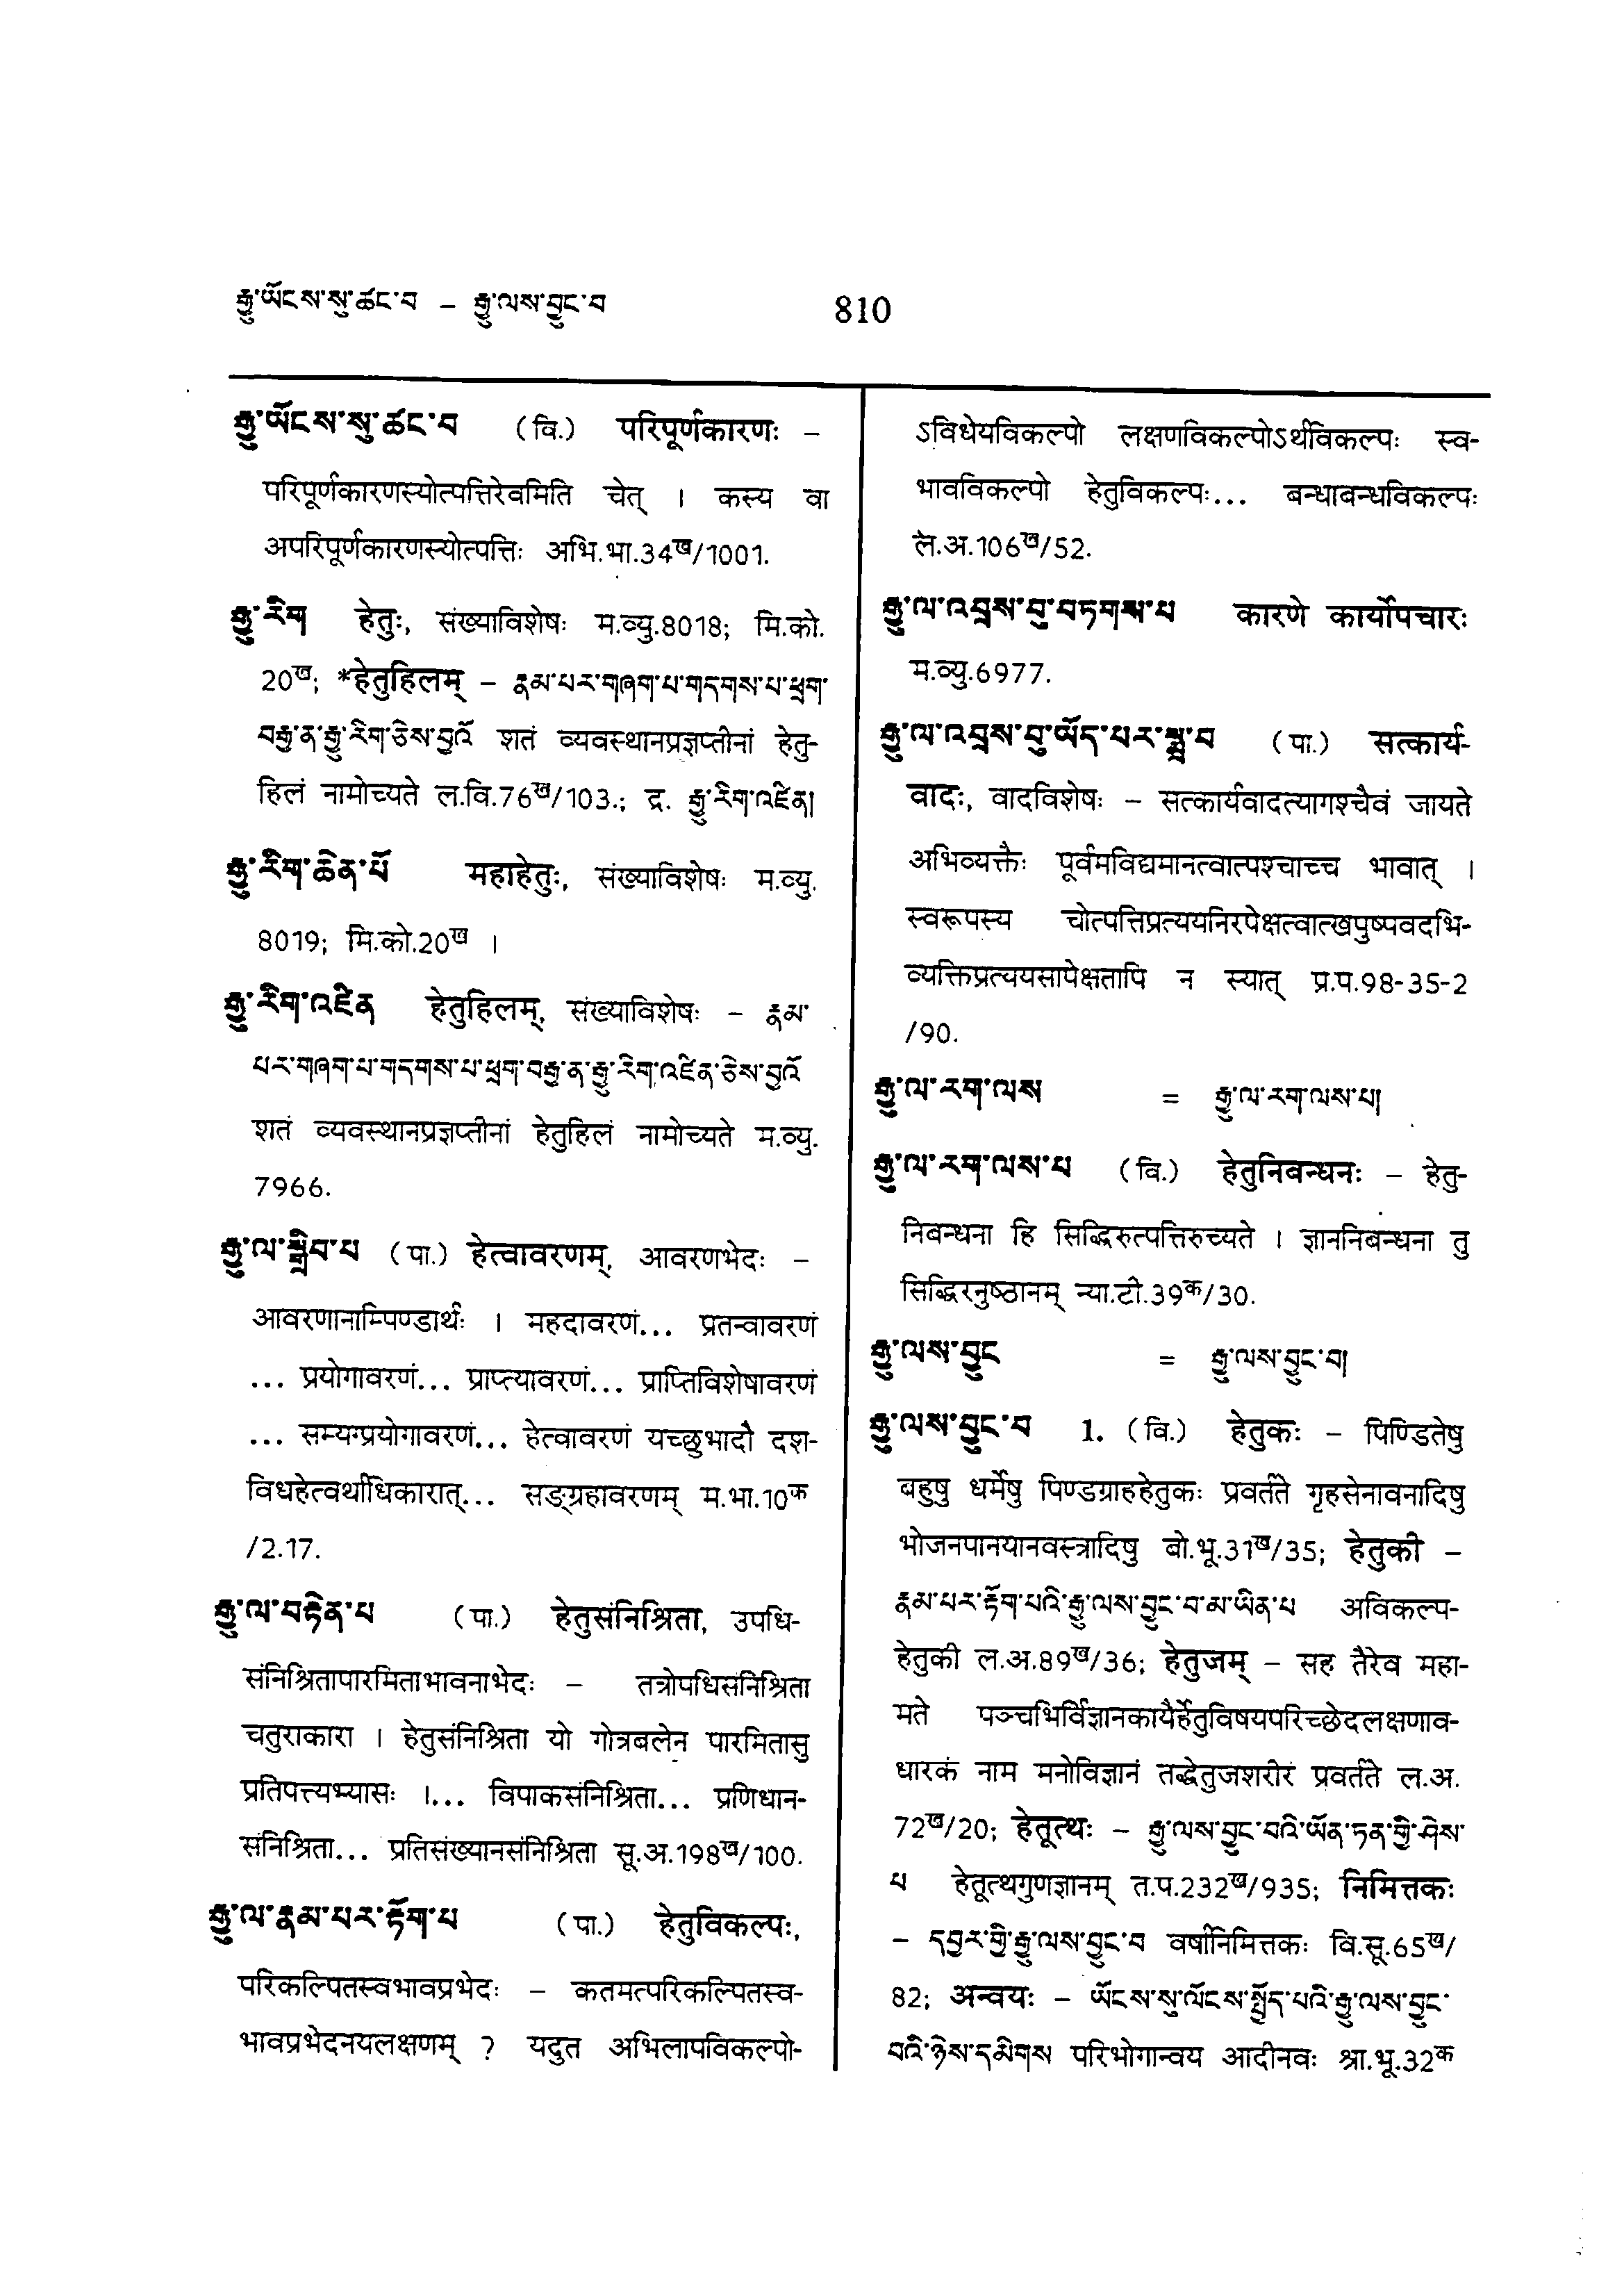 རྒྱུ་ཡོངས་སུ་ཚང་བ – རྒྱུ་ལས་བྱུང་བ
810
རྒྱུ་ཡོངས་སུ་ཚང་བ (वि.) परिपूर्णकारणः –
परिपूर्णकारणस्योत्पत्तिरेवमिति चेत् । कस्य वा
अपरिपूर्णकारणस्योत्पत्तिः अभि.भा.34ख/1001.
རྒྱུ་རིག हेतुः, संख्याविशेषः म.व्यु.8018; मि.को.
20ख; *हेतुहिलम् – རྣམ་པར་གཞག་པ་གདགས་པ་ཕྲག་
བརྒྱ་ན་རྒྱུ་རིག་ཅེས་བྱའོ शतं व्यवस्थानप्रज्ञप्तीनां हेतु-
हिलं नामोच्यते ल.वि.76ख/103.; द्र. རྒྱུ་རིག་འཛིན།
རྒྱུ་རིག་ཆེན་པོ महाहेतुः, संख्याविशेषः म.व्यु.
8019; मि.को.20ख ।
རྒྱུ་རིག་འཛིན हेतुहिलम्, संख्याविशेषः – རྣམ་
པར་གཞག་པ་གདགས་པ་ཕྲག་བརྒྱ་ན་རྒྱུ་རིག་འཛིན་ཅེས་བྱའོ
शतं व्यवस्थानप्रज्ञप्तीनां हेतुहिलं नामोच्यते म.व्यु.
7966.
རྒྱུ་ལ་སྒྲིབ་པ (पा.) हेत्वावरणम्, आवरणभेदः –
आवरणानाम्पिण्डार्थः । महदावरणं... प्रतन्वावरणं
... प्रयोगावरणं... प्राप्त्यावरणं... प्राप्तिविशेषावरणं
... सम्यग्प्रयोगावरणं... हेत्वावरणं यच्छुभादौ दश-
विधहेत्वर्थाधिकारात्... सङ्ग्रहावरणम् म.भा.10क
/2.17.
རྒྱུ་ལ་བརྟེན་པ (पा.) हेतुसंनिश्रिता, उपधि-
संनिश्रितापारमिताभावनाभेदः – तत्रोपधिसंनिश्रिता
चतुराकारा । हेतुसंनिश्रिता यो गोत्रबलेन पारमितासु
प्रतिपत्त्यभ्यासः ।... विपाकसंनिश्रिता... प्रणिधान-
संनिश्रिता... प्रतिसंख्यानसंनिश्रिता सू.अ.198ख/100.
རྒྱུ་ལ་རྣམ་པར་རྟོག་པ (पा.) हेतुविकल्पः,
परिकल्पितस्वभावप्रभेदः – कतमत्परिकल्पितस्व-
भावप्रभेदनयलक्षणम् ? यदुत अभिलापविकल्पो-
ऽविधेयविकल्पो लक्षणविकल्पोऽर्थविकल्पः स्व-
भावविकल्पो हेतुविकल्पः... बन्धाबन्धविकल्पः
ले.अ.106ख/52.
རྒྱུ་ལ་འབྲས་བུ་བཏགས་པ कारणे कार्योपचारः
म.व्यु.6977.
རྒྱུ་ལ་འབྲས་བུ་ཡོད་པར་སྨྲ་བ (पा.) सत्कार्य-
वादः, वादविशेषः – सत्कार्यवादत्यागश्चैवं जायते
अभिव्यक्तैः पूर्वमविद्यमानत्वात्पश्चाच्च भावात् ।
स्वरूपस्य चोत्पत्तिप्रत्ययनिरपेक्षत्वात्खपुष्पवदभि-
व्यक्तिप्रत्ययसापेक्षतापि न स्यात् प्र.प.98-35-2
/90.
རྒྱུ་ལ་རག་ལས = རྒྱུ་ལ་རག་ལས་པ།
རྒྱུ་ལ་རག་ལས་པ (वि.) हेतुनिबन्धनः – हेतु-
निबन्धना हि सिद्धिरुत्पत्तिरुच्यते । ज्ञाननिबन्धना तु
सिद्धिरनुष्ठानम् न्या.टी.39क/30.
རྒྱུ་ལས་བྱུང = རྒྱུ་ལས་བྱུང་བ།
རྒྱུ་ལས་བྱུང་བ 1. (वि.) हेतुकः – पिण्डितेषु
बहुषु धर्मेषु पिण्डग्राहहेतुकः प्रवर्तते गृहसेनावनादिषु
भोजनपानयानवस्त्रादिषु बो.भू.31ख/35; हेतुकी –
རྣམ་པར་རྟོག་པའི་རྒྱུ་ལས་བྱུང་བ་མ་ཡིན་པ अविकल्प-
हेतुकी ल.अ.89ख/36; हेतुजम् – सह तैरेव महा-
मते पञ्चभिर्विज्ञानकायैर्हेतुविषयपरिच्छेदलक्षणाव-
धारकं नाम मनोविज्ञानं तद्धेतुजशरीरं प्रवर्तते ल.अ.
72ख/20; हेतूत्थः – རྒྱུ་ལས་བྱུང་བའི་ཡོན་ཏན་གྱི་ཤེས་
པ हेतूत्थगुणज्ञानम् त.प.232ख/935; निमित्तकः
– དབྱར་གྱི་རྒྱུ་ལས་བྱུང་བ वर्षानिमित्तकः वि.सू.65ख/
82; अन्वयः – ཡོངས་སུ་ལོངས་སྤྱོད་པའི་རྒྱུ་ལས་བྱུང་
བའི་ཉེས་དམིགས परिभोगान्वय आदीनवः श्रा.भू.32क